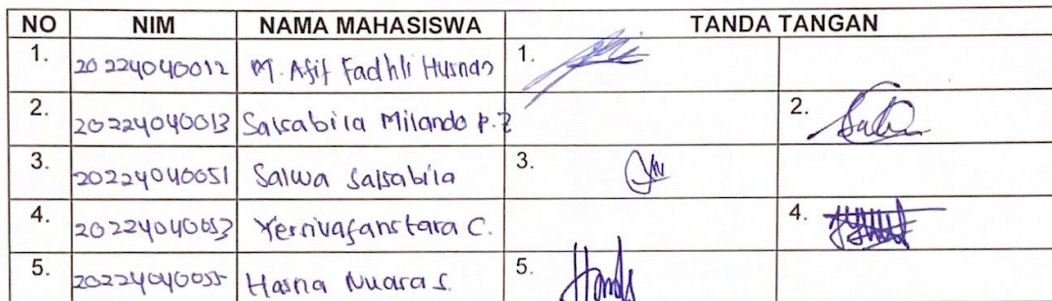 NO NIM NAMA MAHASISWA TANDA TANGAN
1. 20224040012 M. Afif Fadhli Husnan 1.
2. 20224040013 Salsabila Milando P.Z 2.
3. 20224040051 Salwa Salsabila 3.
4. 20224040053 C. 4.
5. 20224040055 Hasna Nuara S. 5.